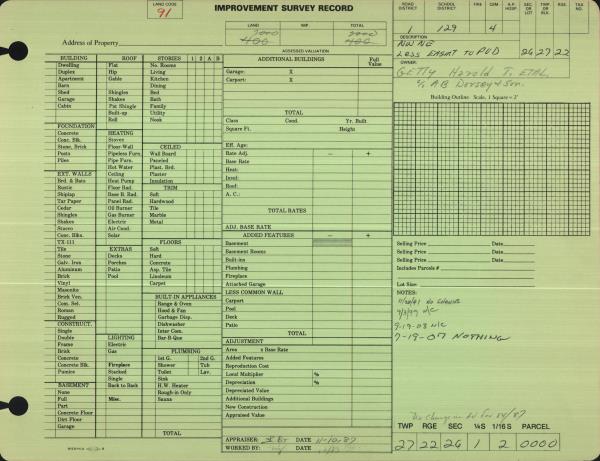 LAND CODE
91
IMPROVEMENT SURVEY RECORD
LAND IMP. TOTAL
Address of Property
ASSESSED VALUATION
ROAD DISTRICT SCHOOL DISTRICT FIRE CEM A.P. HOSP SEC OR LOT TWP OR BLK RGE. ACC.
1 129 4
26 27 22
DESCRIPTION
NW NE
LESS EASMT TO PUD
OWNER:
GETTY Harold T. ETAL
% A B Dorsey & Son.
Building Outline Scale, 1 Square = 2'
BUILDING ROOF STORIES 1 2 A B
Dwelling Flat No. Rooms
Duplex Hip Living
Apartment Gable Kitchen
Barn Dining
Shed Shingles Bed
Garage Shakes Bath
Cabin Pat Shingle Family
Built-up Utility
Roll Nook
FOUNDATION
Concrete HEATING
Conc. Blk. Stoves
Stone, Brick Floor-Wall CEILED
Posts Pipeless Furn. Wall Board
Piles Pipe Furn. Paneled
Hot Water Plast. Brd.
EXT. WALLS Ceiling Plaster
Brd. & Bats Heat Pump Insulation
Rustic Floor Rad. TRIM
Shiplap Base B. Rad. Soft
Tar Paper Panel Rad. Hardwood
Cedar Oil Burner Tile
Shingles Gas Burner Marble
Shakes Electric Metal
Stucco Air Cond.
Conc. Blks. Solar
TX-111 FLOORS
Tile EXTRAS Soft
Stone Decks Hard
Galv. Iron Porches Concrete
Aluminum Patio Asp. Tile
Brick Pool Linoleum
Vinyl Carpet
Masonite
Brick Ven. BUILT-IN APPLIANCES
Com. Sel. Range & Oven
Roman Hood & Fan
Rugged Garbage Disp.
CONSTRUCT. Dishwasher
Single Inter Com.
Double LIGHTING Bar-B-Que
Frame Electric
Brick Gas PLUMBING
Concrete 1st G. 2nd G.
Concrete Blk. Fireplace Shower Tub
Pumice Stacked Toilet Lav.
Single Sink
BASEMENT Back to Back H.W. Heater
None Rough-in Only
Full Misc. Sauna
Part
Concrete Floor
Dirt Floor
Garage
TOTAL
ADDITIONAL BUILDINGS Full Value
Garage: X
Carport: X
TOTAL
Class Cond. Yr. Built
Square Ft. Height
Eff. Age:
Rate Adj. − +
Base Rate
Heat:
Insul:
Roof:
A. C.:
TOTAL RATES
ADJ. BASE RATE
ADDED FEATURES − +
Basement
Basement Rooms
Built-ins
Plumbing
Fireplace
Attached Garage
LESS COMMON WALL
Carport
Pool
Deck
Patio
TOTAL
ADJUSTMENT
Area x Base Rate
Added Features
Reproduction Cost
Local Multiplier %
Depreciation %
Depreciated Value
Additional Buildings
New Construction
Appraised Value
APPRAISER: DATE 11-10-87
WORKED BY: DATE
Selling Price Date
Selling Price Date
Selling Price Date
Includes Parcels #
Lot Size:
NOTES:
NO CHANGE
N/C
9-19-03 N/C
7-19-07 NOTHING
TWP RGE SEC ¼S 1/16 S PARCEL
27 22 26 1 2 0000